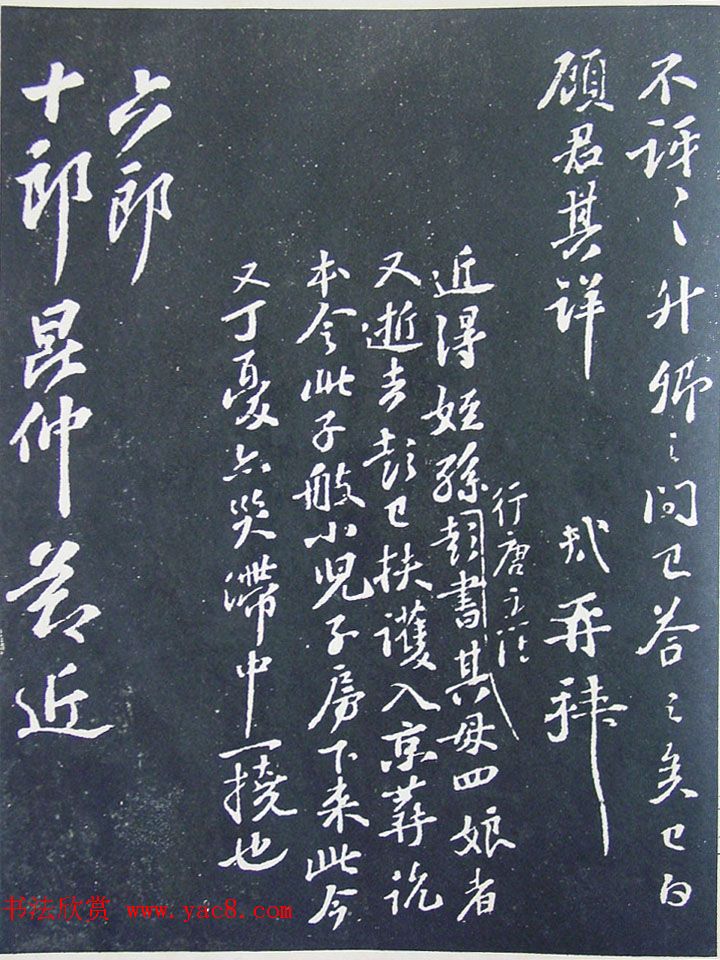 不訝〻升卿之問已答之矣已白
顾君其詳 軾再拜
近得姪孫彭書其母四娘者
行唐主簿
又逝去彭已扶護入京葬訖
本令此子般小兒子房下来此今
又丁憂亦災滯中一撓也
六郎
十郎昆仲並近
书法欣赏 www.yac8.com